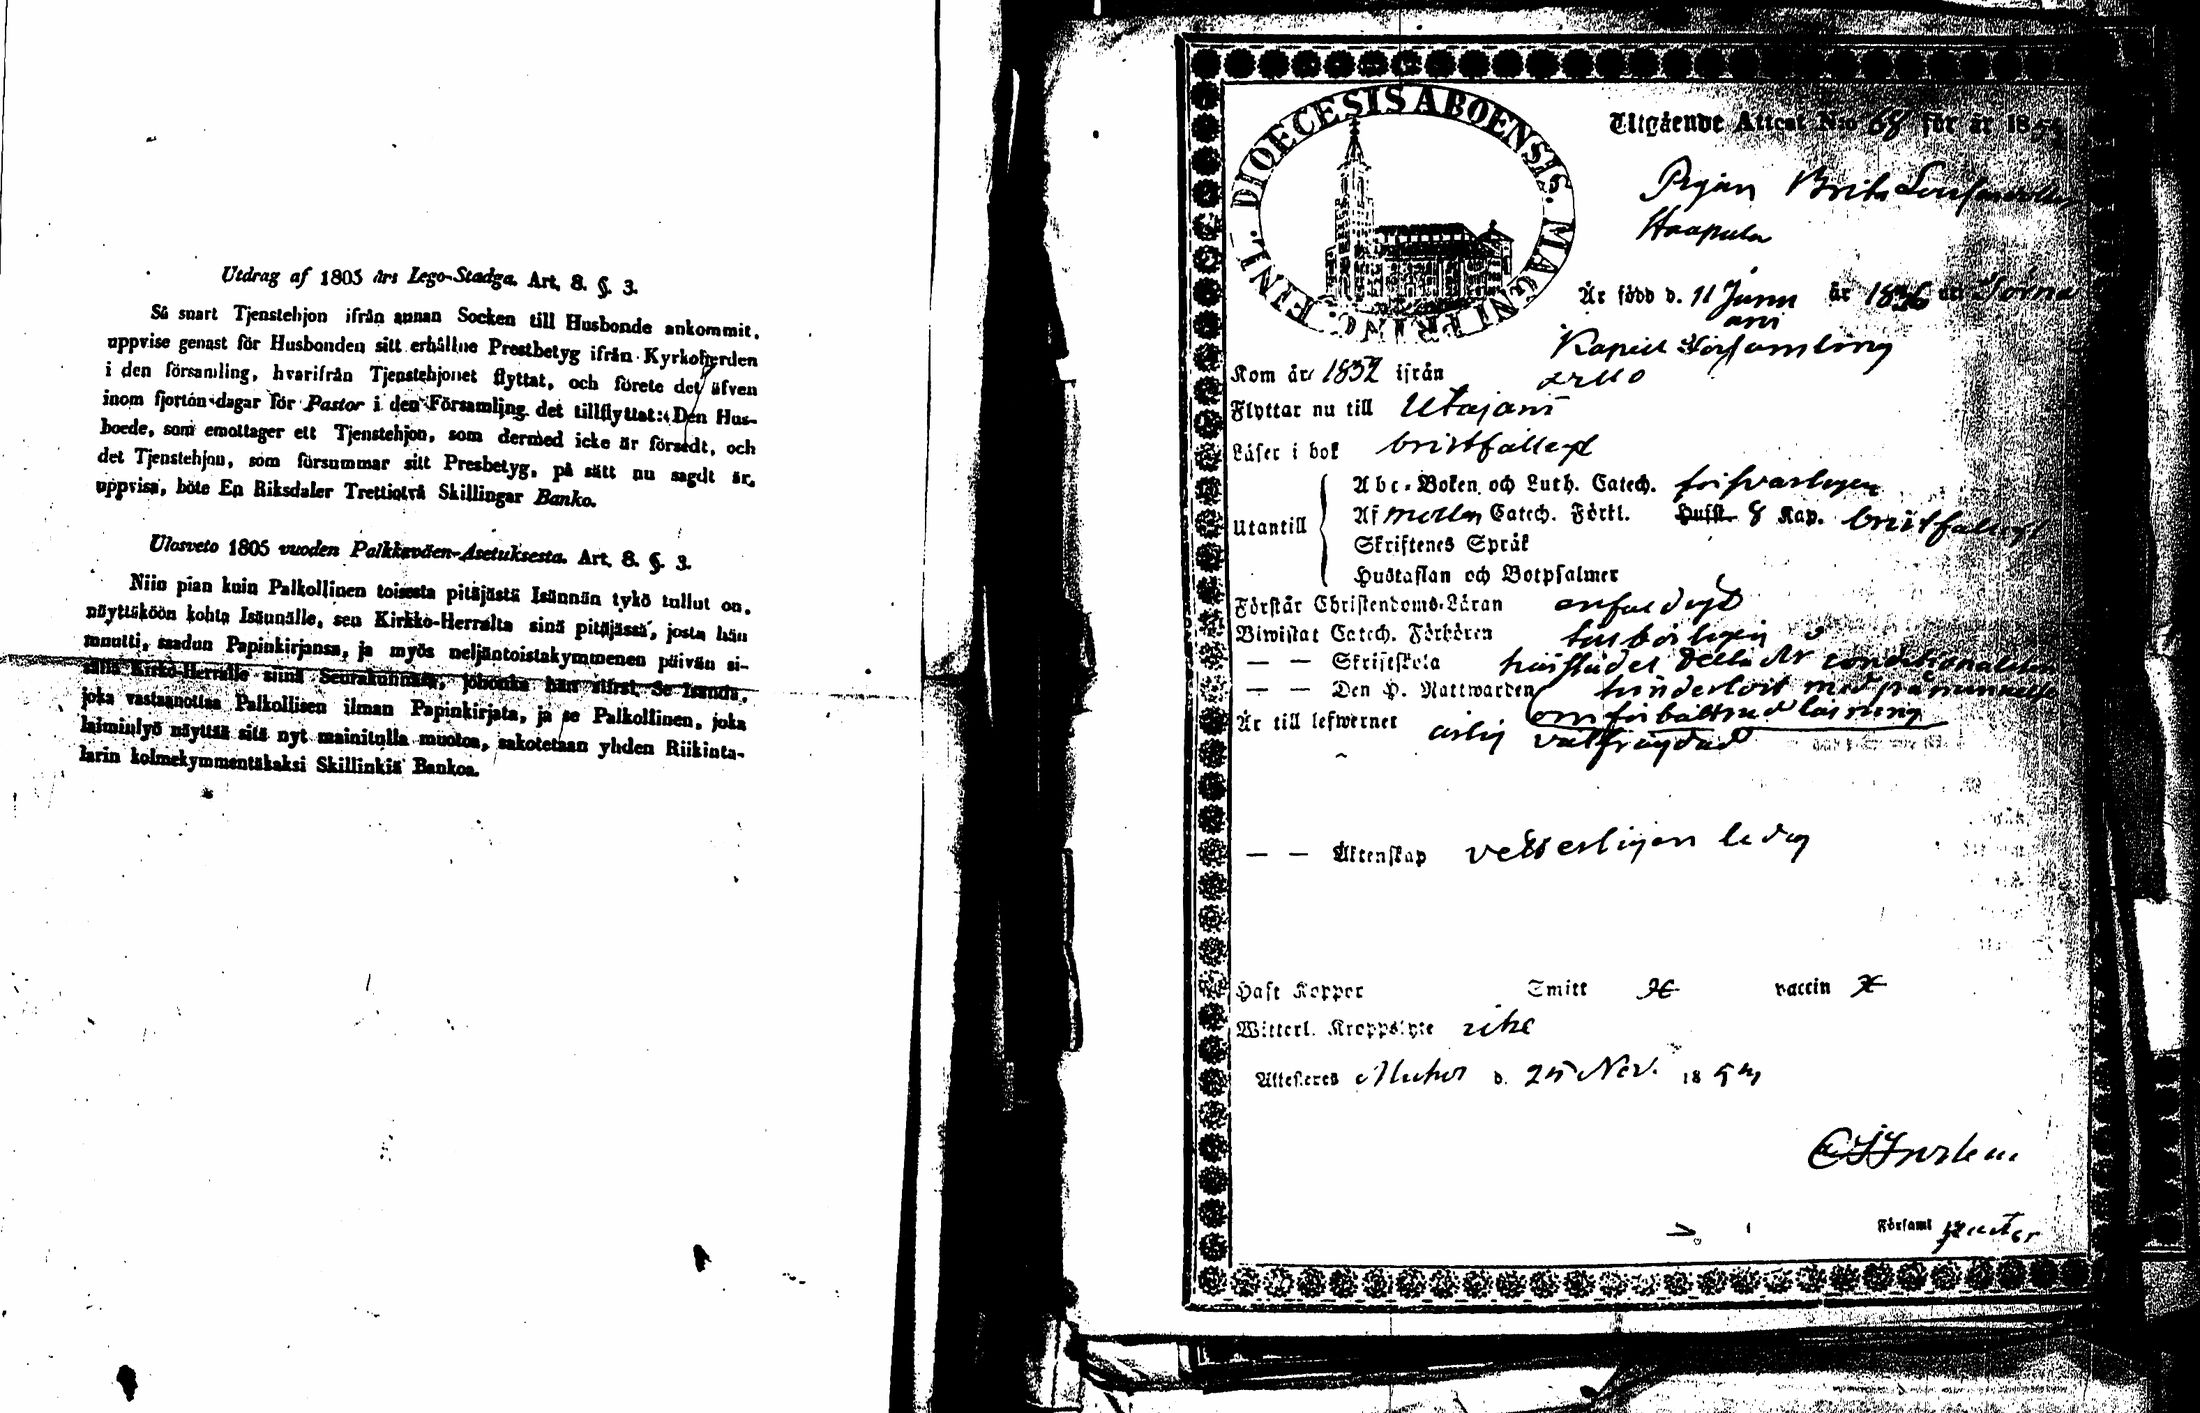 Utdrag af 1805 års Lego-Stadga. Art. 8. §. 3.
Så snart Tjenstehjon ifrån annan Socken till Husbonde ankommit,
uppvise genast för Husbonden sitt erhållne Prestbetyg ifrån Kyrkoherden
i den församling, hvarifrån Tjenstehjonet flyttat, och förete det äfven
inom fjorton dagar för Pastor i den Församling det tillflyttat: Den Hus-
boede, som emottager ett Tjenstehjon, som dermed icke är försedt, och
det Tjenstehjon, som försummar sitt Presbetyg, på sätt nu sagdt är,
uppvisa, böte En Riksdaler Trettiotvå Skillingar Banko.
Ulosveto 1805 vuoden Palkkaväen-Asetuksesta. Art. 8. §. 3.
Niin pian kuin Palkollinen toisesta pitäjästä Isännän tykö tullut on,
näyttäköön kohta Isännälle, sen Kirkko-Herralta siinä pitäjässä, josta hän
muutti, saadun Papinkirjansa, ja myös neljäntoistakymmenen päivän si-
sällä Kirkko-Herralle siinä Seurakunnassa, johonka hän siirsi. Se Isäntä,
joka vastaanottaa Palkollisen ilman Papinkirjata, ja se Palkollinen, joka
laiminlyö näyttää sitä nyt mainitulla muotoa, sakotetaan yhden Riikinta-
larin kolmekymmentäkaksi Skillinkiä Bankoa.
DIOECESIS ABOENSIS. MAGNI PRINC: FINL.
Utgående Attest N:o 68 för år 185
Pigan Brita
Haapala
Är född d. 11 Junii år 1836 uti
Kapell Församling
Kom år 1852 ifrån
Flyttar nu till Utajärvi
Läser i bok bristfälligt
Utantill
Abc-Boken och Luth. Catech. försvarligen
Af Catech. Förkl. Hufst. 8 Kap. bristfälligt
Skriftenes Språk
Hustaflan och Botpsalmer
Förstår Christendoms-Läran enfaldigt
Biwistat Catech. Förhören behörligen
— — Skriftskola
— — Den H. Nattwarden hinderlöst med påminnelse
om förbättrad läsning
Är till lefwernet ärlig välfrägdad
— — Äktenskap vetterligen ledig
Haft Koppor Smitt vaccin
Witterl. Kroppslyte icke
Attesteras Muhos d. 25 Nov. 185
Församl pastor